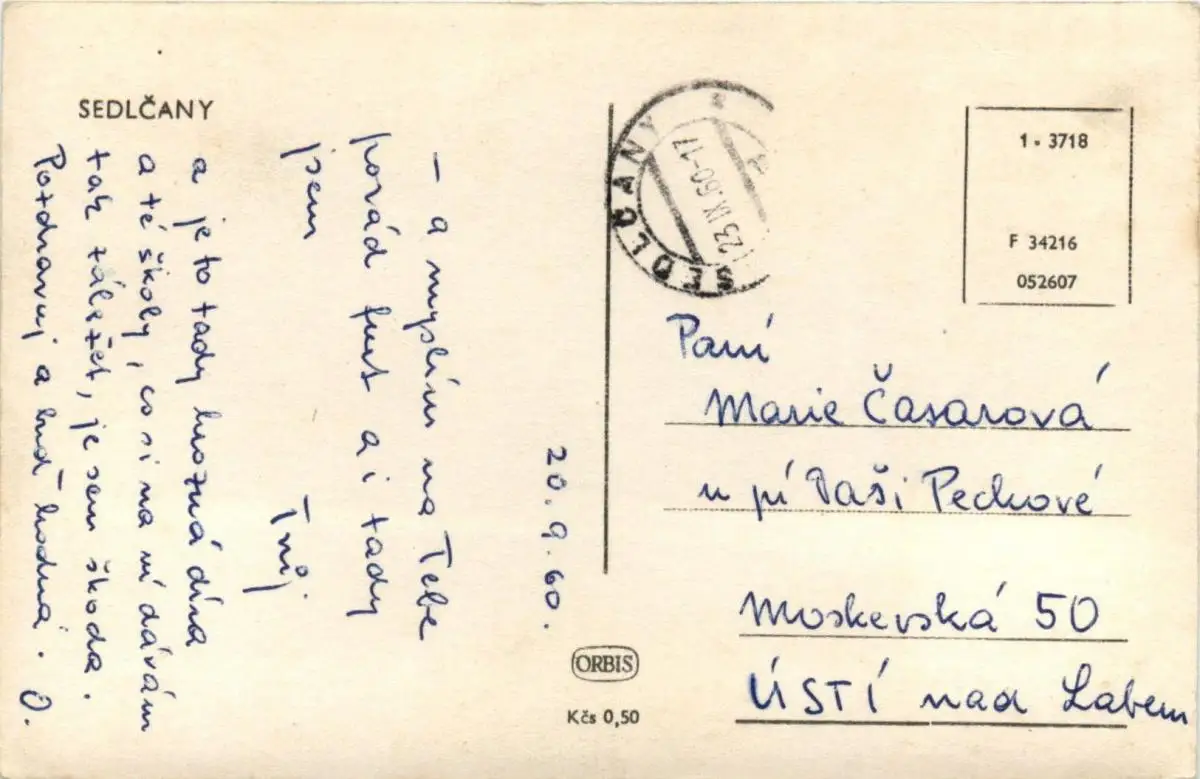 SEDLČANY
20.9.60.
– a myslím na Tebe
pořád furt a i tady
jsem
Tvůj
a je to tady hrozná díra
a té školy, co si na ní dávám
tak záležet, je sem škoda.
Pozdravuj a buď hodná. O.
SEDLČANY
23.IX.60-17
1 • 3718
F 34216
052607
Paní
Marie Časarová
u pí Daši Peckové
Moskevská 50
ÚSTÍ nad Labem
ORBIS
Kčs 0,50